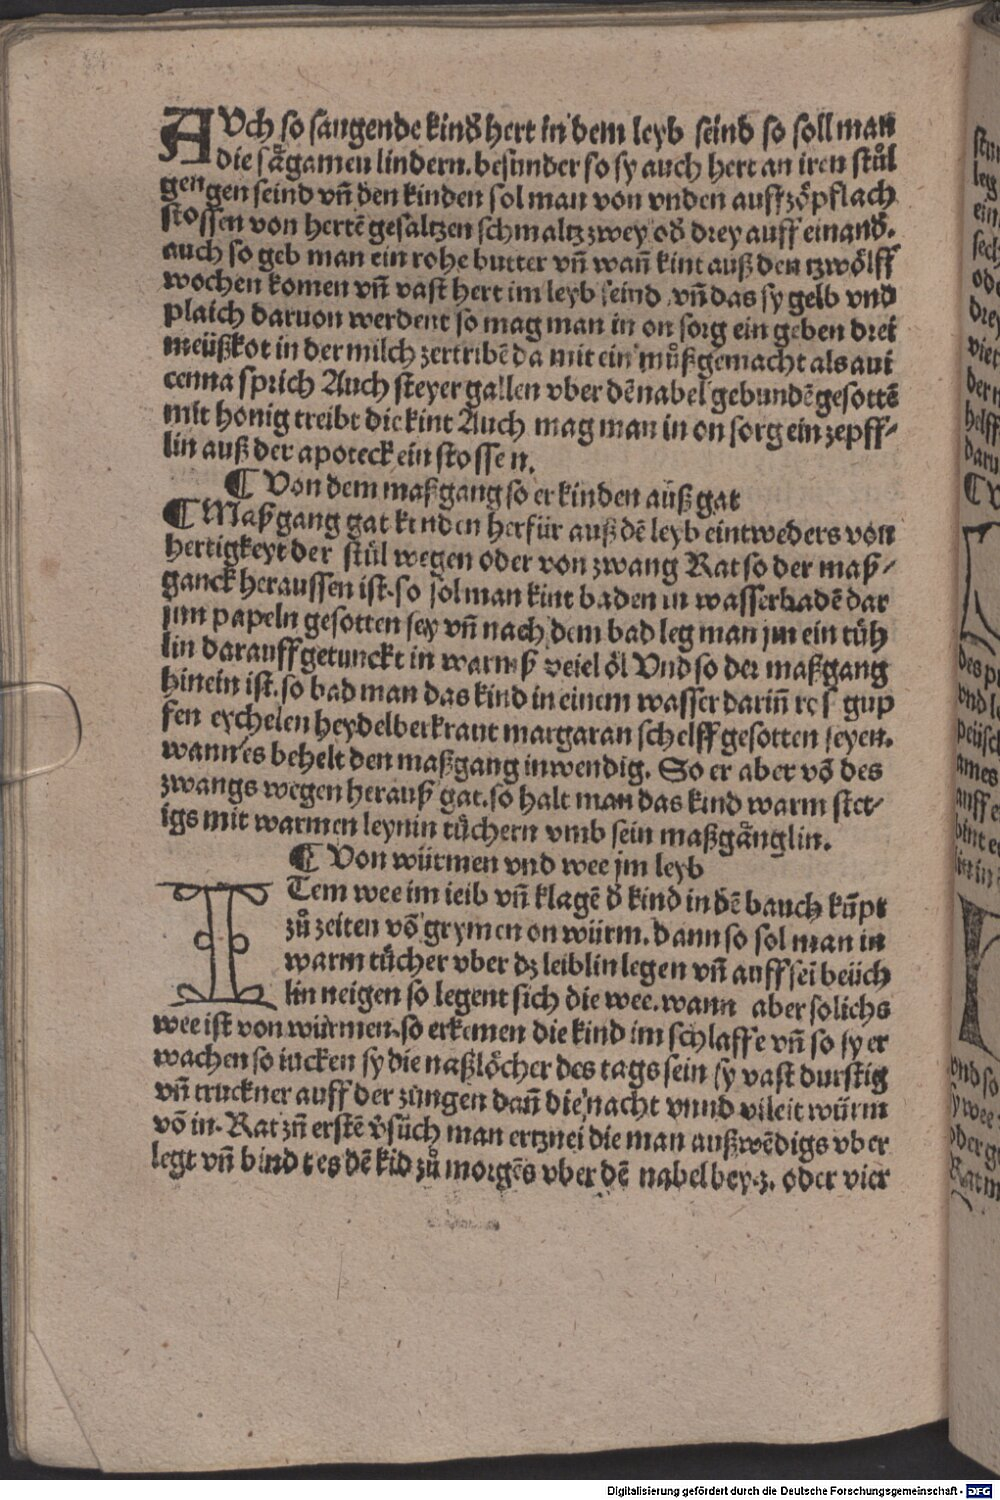 AUch so saugende kinď hert in dem leyb seind so soll man
die sǎgamen lindern. besunder so sy auch hert an iren stůl
gengen seind vn̄ den kinden sol man von vnden auff zǒpflach
stossen von hertē gesaltzen schmaltz zwey oď drey auff einanď.
auch so geb man ein rohe butter vn̄ wan̄ kint auß den tzwǒlff
wochen komen vn̄ vast hert im leyb seind vn̄ das sy gelb vnd
plaich daruon werdent so mag man in on sorg ein geben drei
meüßkot in der milch zertribē da mit ein můßgemacht als aui
cenna sprich Auch steyer gallen vber dē nabel gebundē gesottē
mit honig treibt die kint Auch mag man in on sorg ein zepff⸗
lin auß der apoteck ein stossen.
¶ Von dem maßgang so er kinden auß gat
¶ Maßgang gat kinden herfür auß dē leyb eintweders von
hertigkeyt der stůl wegen oder von zwang Rat so der maß⸗
ganck heraussen ist. so sol man kint baden in wasserbadē dar
jnn papeln gesotten sey vn̄ nach dem bad leg man jm ein tüh
lin darauff getunckt in warmß veiel ǒl Vnd so der maßgang
hinein ist. so bad man das kind in einem wasser darin̄ ros gup
fen eychelen heydelberkraut margaran schelff gesotten seyen.
wann es behelt den maßgang inwendig. So er aber vō des
zwangs wegen herauß gat. so halt man das kind warm stet⸗
igs mit warmen leynin tůchern vmb sein maßgǎnglin.
¶ Von würmen vnd wee jm leyb
ITem wee im leib vn̄ klagē ď kind in dē bauch kūpt
zů zeiten vō grymen on würm. dann so sol man in
warm tůcher vber dz leiblin legen vn̄ auff sei beüch
lin neigen so legent sich die wee. wann aber solichs
wee ist von würmen. so erkemen die kind im schlaffe vn̄ so sy er
wachen so iucken sy die naßlǒcher des tags sein sy vast durstig
vn̄ truckner auff der zungen dan̄ die nacht vnnd vileit würm
vō in. Rat zū erstē v̌such man ertznei die man außwēdigs vber
legt vn̄ bindt es dē kid zů morgēs vber dē nabel bey .z. oder vier
Digitalisierung gefördert durch die Deutsche Forschungsgemeinschaft - DFG